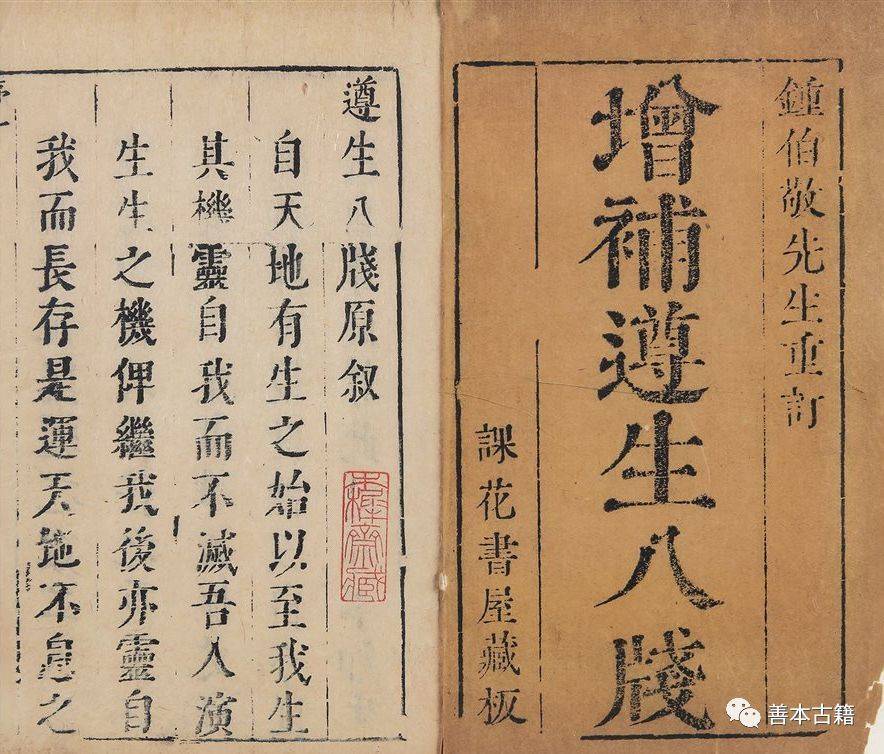 鍾伯敬先生重訂
增補遵生八牋
課花書屋藏板
遵生八牋原叙
自天地有生之始以至我生
其機靈自我而不滅吾人演
生生之機俾繼我後亦靈自
我而長存是運天地不息之
善本古籍